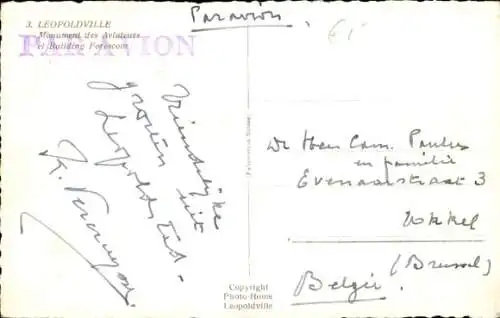 Par avion
3. LEOPOLDVILLE
Monument des Aviateurs
et Building Forescom
PAR AVION
Vriendelijke
groeten uit
Leopoldstad -
De Heer Cam. Paulus
en familie
Evenaarstraat 3
Ukkel
(Brussel)
België.
Copyright
Photo-Home
Leopoldville